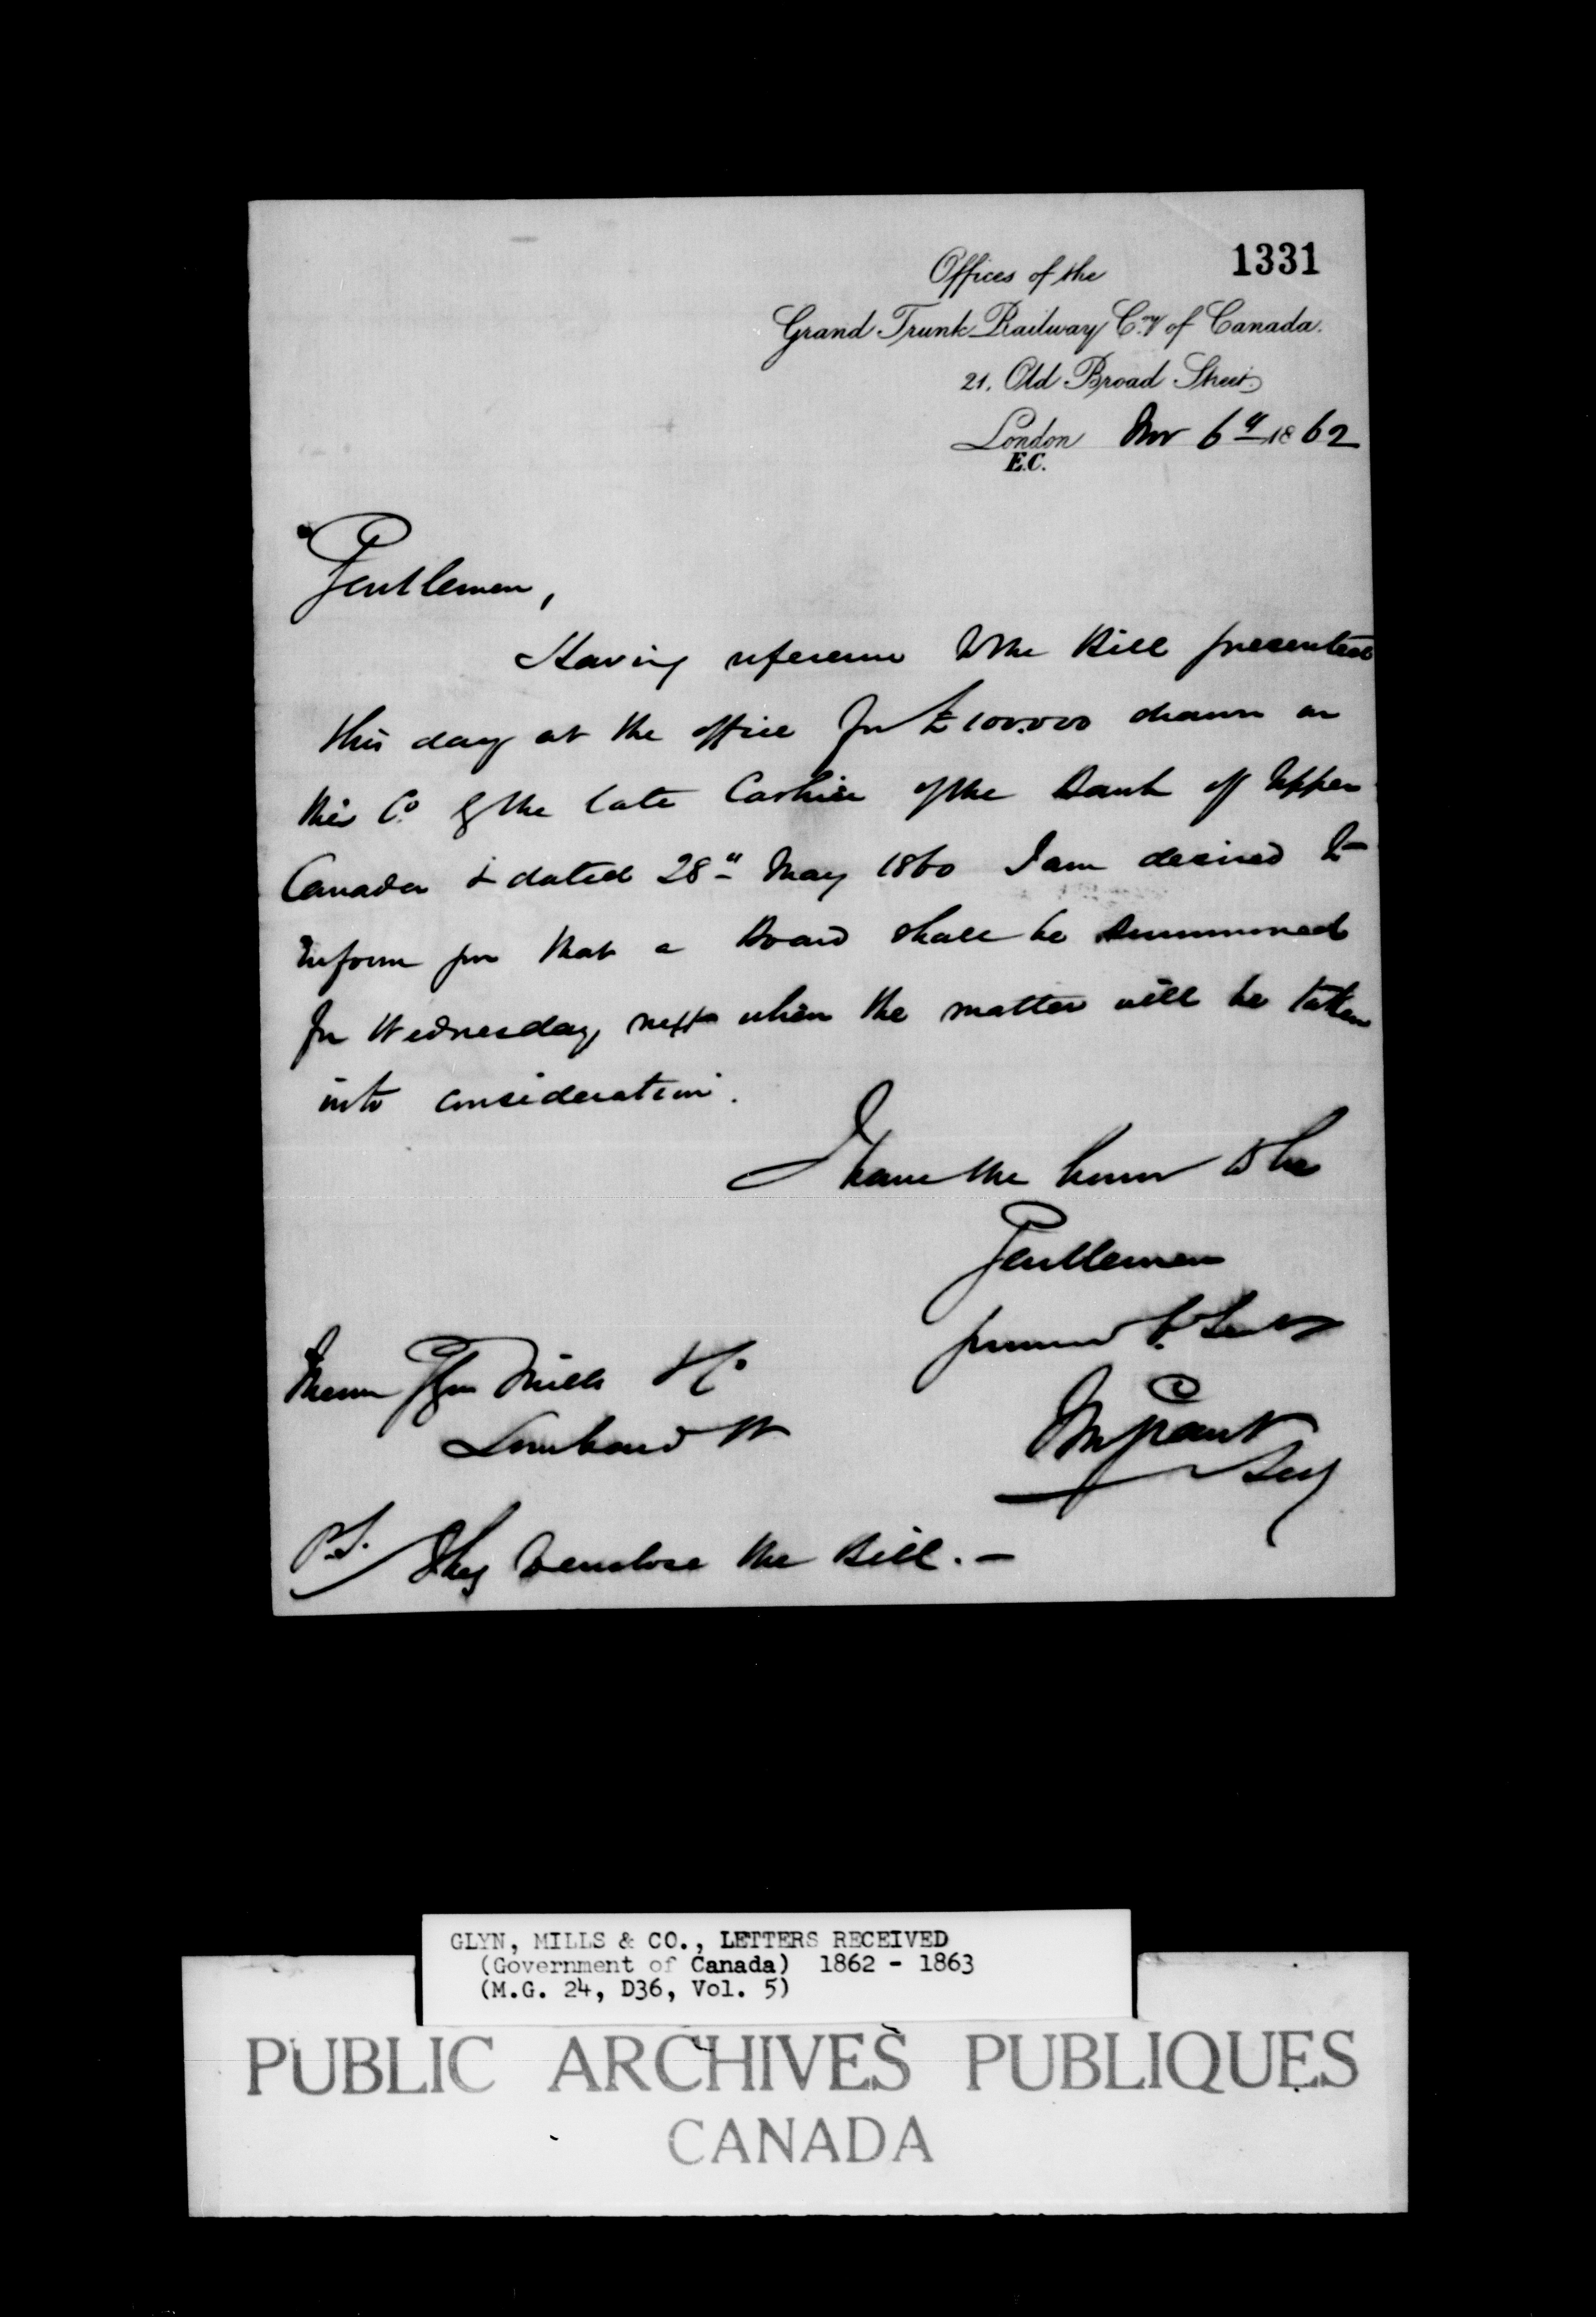 1331
Offices of the
Grand Trunk Railway Coy. of Canada.
21, Old Broad Street,
London Nov 6th 1862
E.C.
Gentlemen,
Having reference to the Bill presented
this day at the office for £100.000 drawn on
this Co. by the late Cashier of the Bank of Upper
Canada & dated 28th May 1860 I am desired to
inform you that a Board shall be summoned
for Wednesday next when the matter will be taken
into consideration.
I have the honor to be
Gentlemen
your mo. ob. Servt
Messrs Glyn Mills & Co
Lombard St
Jn M Grant
Secy
P.S. I beg to enclose the Bill. —
GLYN, MILLS & CO., LETTERS RECEIVED
(Government of Canada) 1862 - 1863
(M.G. 24, D36, Vol. 5)
PUBLIC ARCHIVES PUBLIQUES
CANADA